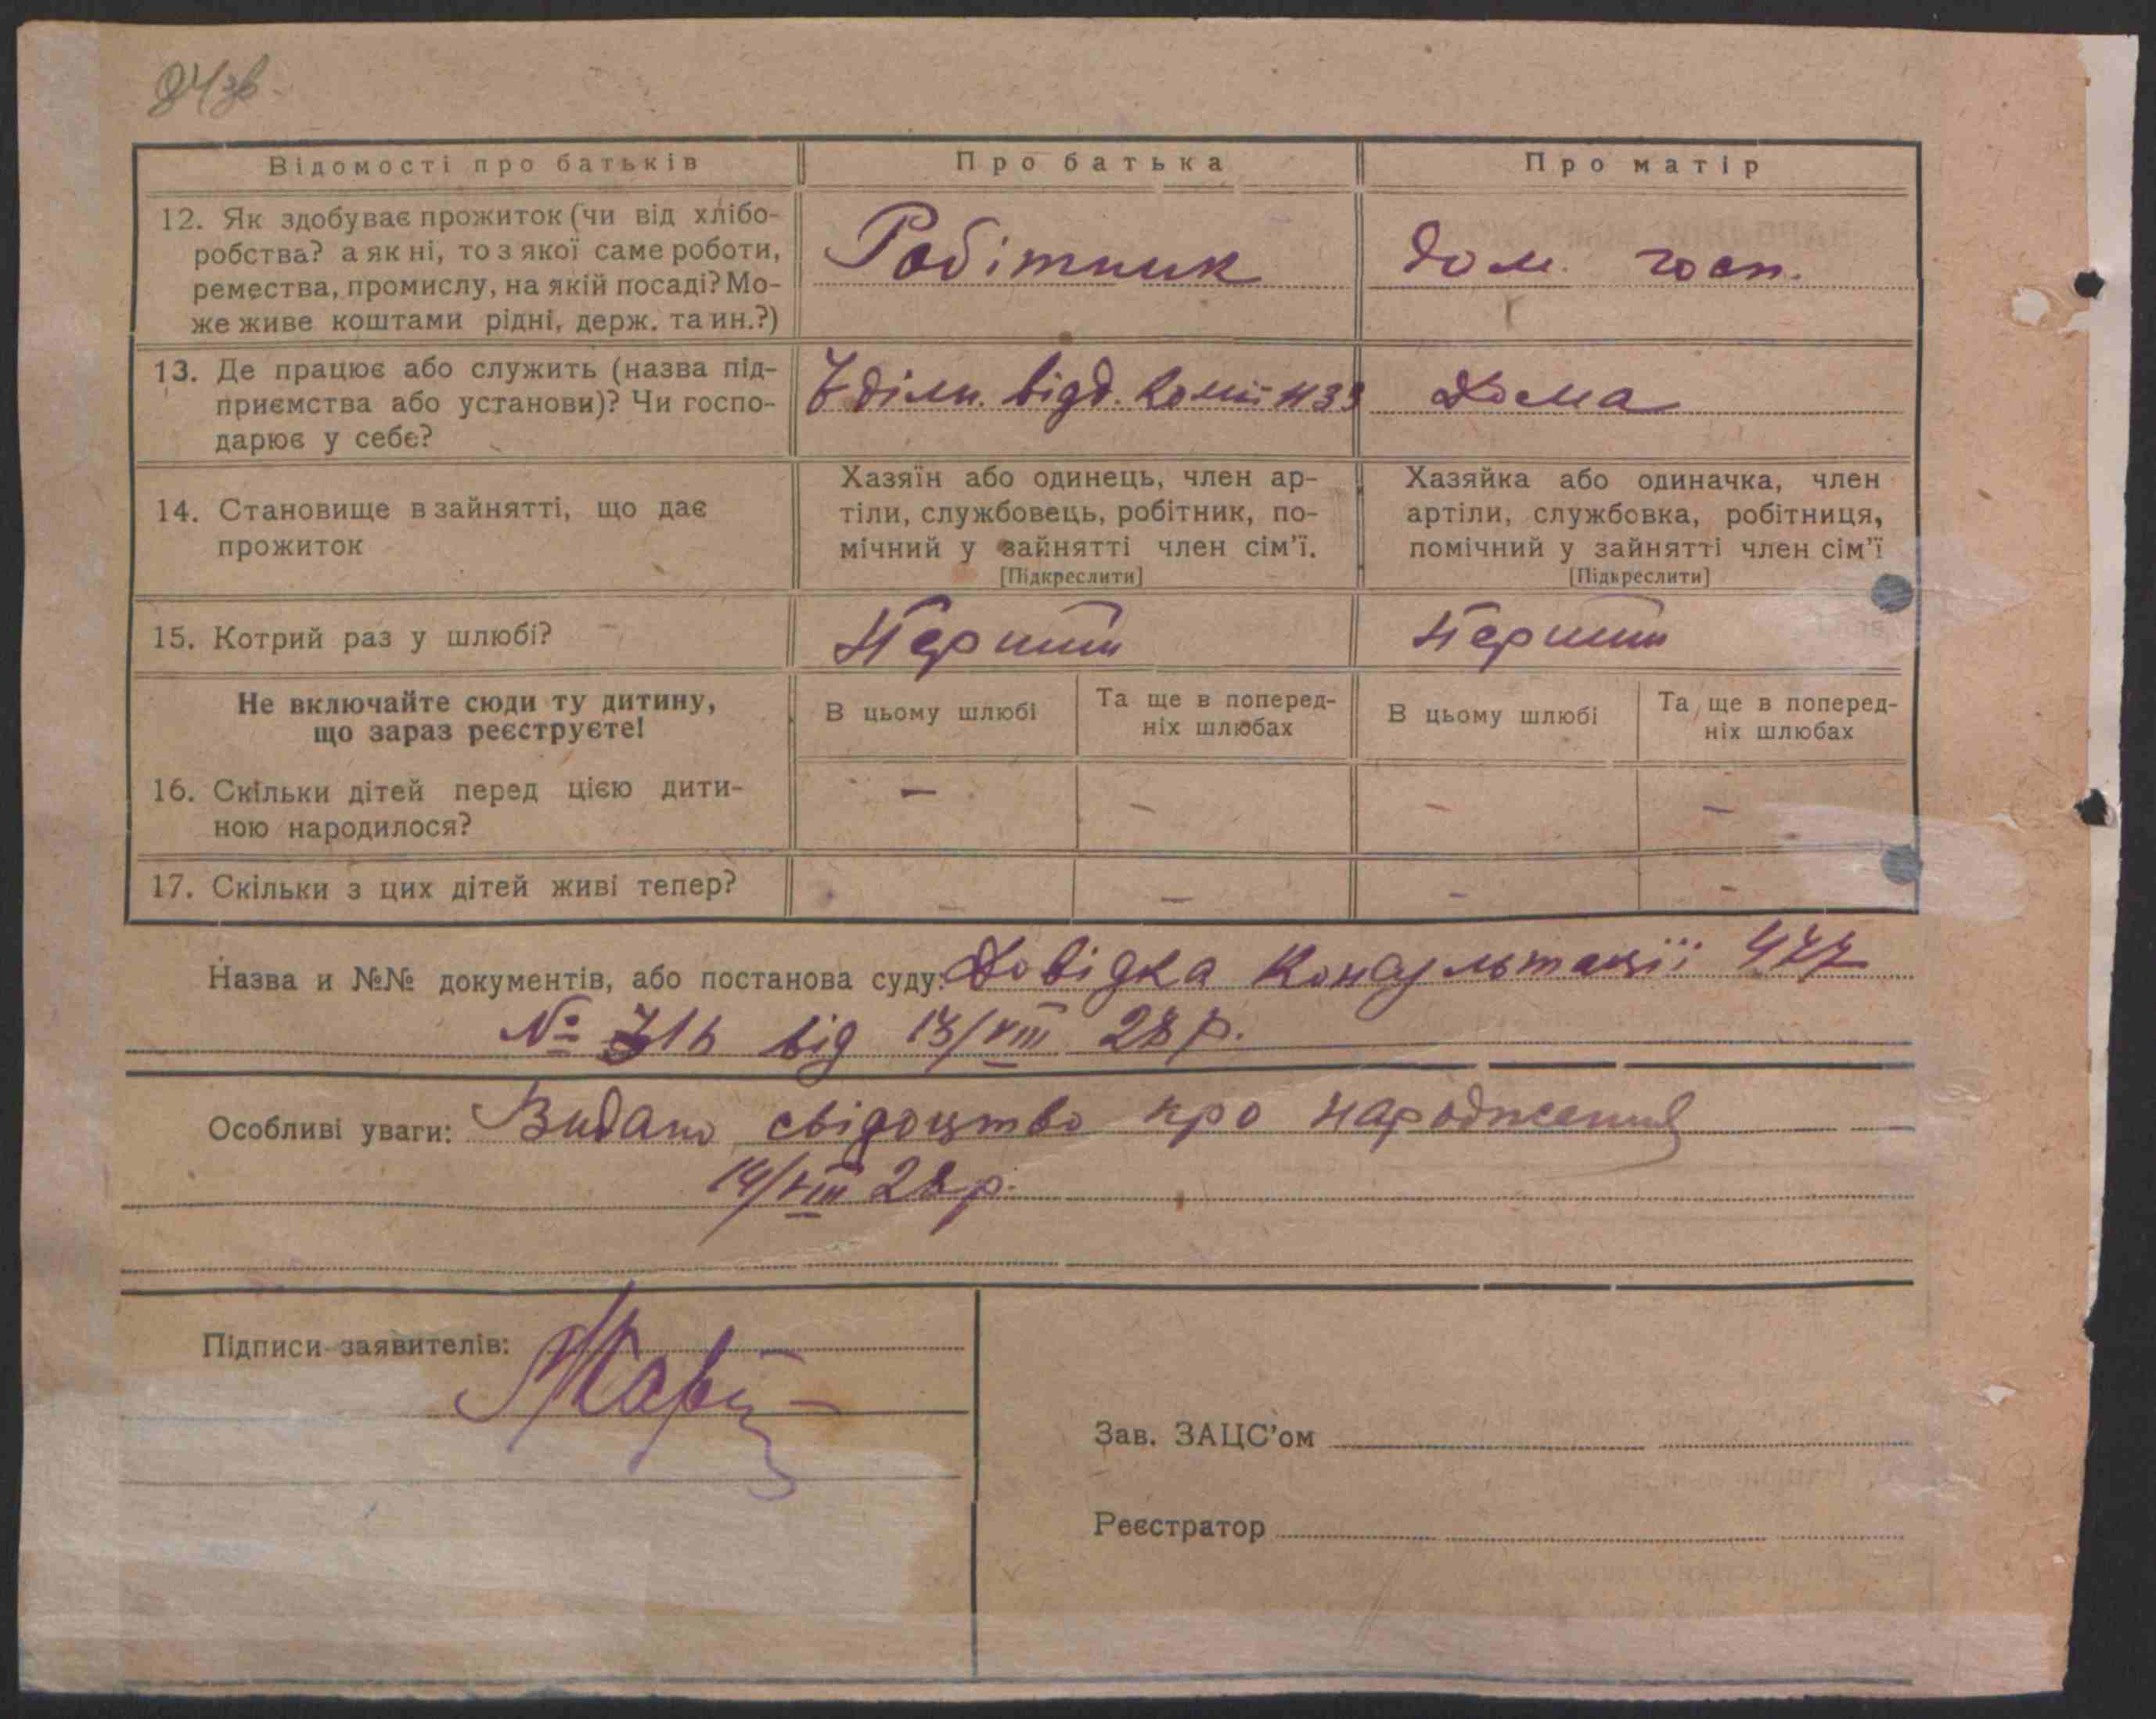 84 зв.
Відомості про батьків
Про батька
Про матір
12. Як здобуває прожиток (чи від хлібо-
робства? а як ні, то з якої саме роботи,
ремества, промислу, на якій посаді? Мо-
же живе коштами рідні, держ. та ин.?)
Робітник
дом. госп.
13. Де працює або служить (назва під-
приємства або установи)? Чи госпо-
дарює у себе?
7 дільн. відд.
Дома
14. Становище в зайнятті, що дає
прожиток
Хазяїн або одинець, член ар-
тіли, службовець, робітник, по-
мічний у зайнятті член сім'ї.
[Підкреслити]
Хазяйка або одиначка, член
артіли, службовка, робітниця,
помічний у зайнятті член сім'ї
[Підкреслити]
15. Котрий раз у шлюбі?
Перший
Перший
Не включайте сюди ту дитину,
що зараз реєструєте!
В цьому шлюбі
Та ще в поперед-
ніх шлюбах
В цьому шлюбі
Та ще в поперед-
ніх шлюбах
16. Скільки дітей перед цією дити-
ною народилося?
— — — —
17. Скільки з цих дітей живі тепер?
— — — —
Назва и №№ документів, або постанова суду: Довідка Консультації 477
№ 716 від 13/VIII 28 р.
Особливі уваги: Видано свідоцтво про народження
14/VIII 28 р.
Підписи заявителів:
Зав. ЗАЦС'ом
Реєстратор